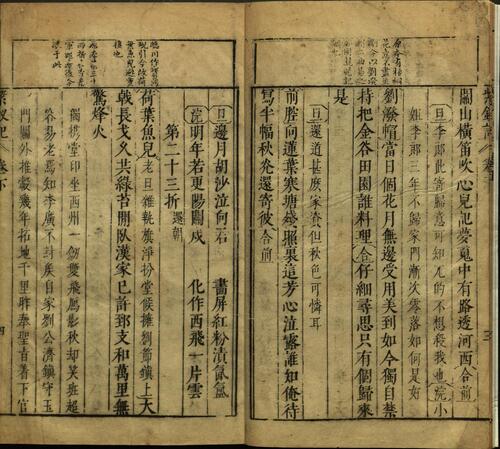 關山橫笛吹心兒記夢䰟中有路透河西合前
旦李郎此寄歸意可知尤的不想殺我也浣小
姐李郎二年不歸家門漸次零落如何是好
劉潑帽當日個花月無邊受用美到如今獨自禁
持把金谷田園誰料理合仔細尋思只有個歸來
是
旦還道甚麽家貲但秋色可憐耳
前腔向蓮葉寒塘
照裏這芳心泣露誰如俺待
寫半幅秋光還寄彼合前
旦邊月胡沙泣向石
畫屏紅粉漬氤氳
浣明年若更陽關戍
化作西飛一片雲
第二十三折
還朝
荷葉魚兒老旦雜執旗淨扮堂候擁劉節鎮上大
戟長戈久共綠苔開隊漢家已許郅支和萬里無
驚烽火
獨橋堂印坐西州一劔雙飛鳳影秋却笑班超
容易老焉知李廣不封侯自家劉公濟鎮守玉
門關外推轂幾年拓地千里昨奉聖旨着下官
紫釵記
卷下
四